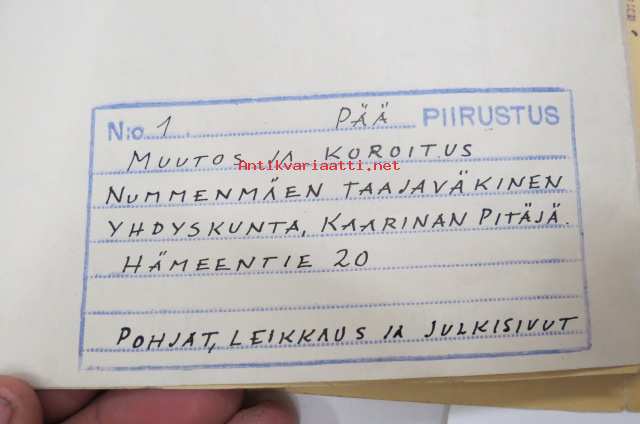 N:o 1 PÄÄ PIIRUSTUS
MUUTOS JA KOROITUS
Antikvariaatti.net
NUMMENMÄEN TAAJAVÄKINEN
YHDYSKUNTA, KAARINAN PITÄJÄ.
HÄMEENTIE 20
POHJAT, LEIKKAUS JA JULKISIVUT